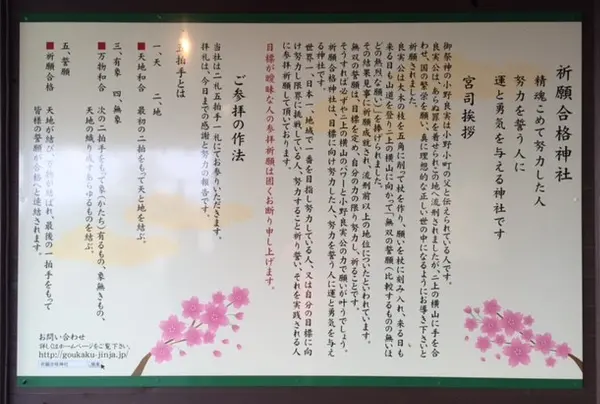 祈願合格神社
精魂こめて努力した人
努力を誓う人に
運と勇気を与える神社です
宮司挨拶
御祭神の小野良実は小野小町の父と伝えられている人です。
良実公は、あらぬ罪を着せられこの地へ流刑されましたが、二上の横山に手を合
わせ、国の繁栄を願い、真に理想的な正しい世の中になるようにお導き下さいと
祈願されました。
良実公は大木の枝を五角に削って杖を作り、願いを杖に刻み入れ、来る日も
来る日も山道を登り二上の横山に向かって「無双の誓願」(比較するものの無いほ
どの熱烈な願い)を捧げられました。
その結果見事に祈願成就され、流刑前以上の地位についたといわれています。
無双の誓願は、目標を定め、自分の力の限り努力し、祈ることです。
そうすれば必ずや二上の横山のパワーと小野良実公の力で願いが叶うでしょう。
祈願合格神社は、目標に向け努力した人、努力を誓う人に運と勇気を与え
る神社です。
世界一、日本一、地域で一番を目指し努力している人、又は自分の目標に向
け努力し限界に挑戦している人、努力すること祈り誓い、それを実践される人
に参拝祈願して頂いております。
目標が曖昧な人の参拝祈願は固くお断り申し上げます。
ご参拝の作法
当社は二礼五拍手一礼にてお参りいただきます。
拝礼は、今日までの感謝と努力の報告です。
五拍手とは
一、天 二、地
■天地和合 最初の二拍をもって天と地を結ぶ。
三、有象 四、無象
■万物和合 次の二拍手をもって象(かたち)有るもの、象無きもの、
天地の織り成すあらゆるものを結ぶ。
五、誓願
■祈願合格 天地が結び、万物が結ばれ、最後の一拍手をもって
皆様の誓願が合格へと連結されます。
お問い合わせ
詳しくはホームページをご覧下さい。
http://goukaku-jinja.jp/
祈願合格神社 検索